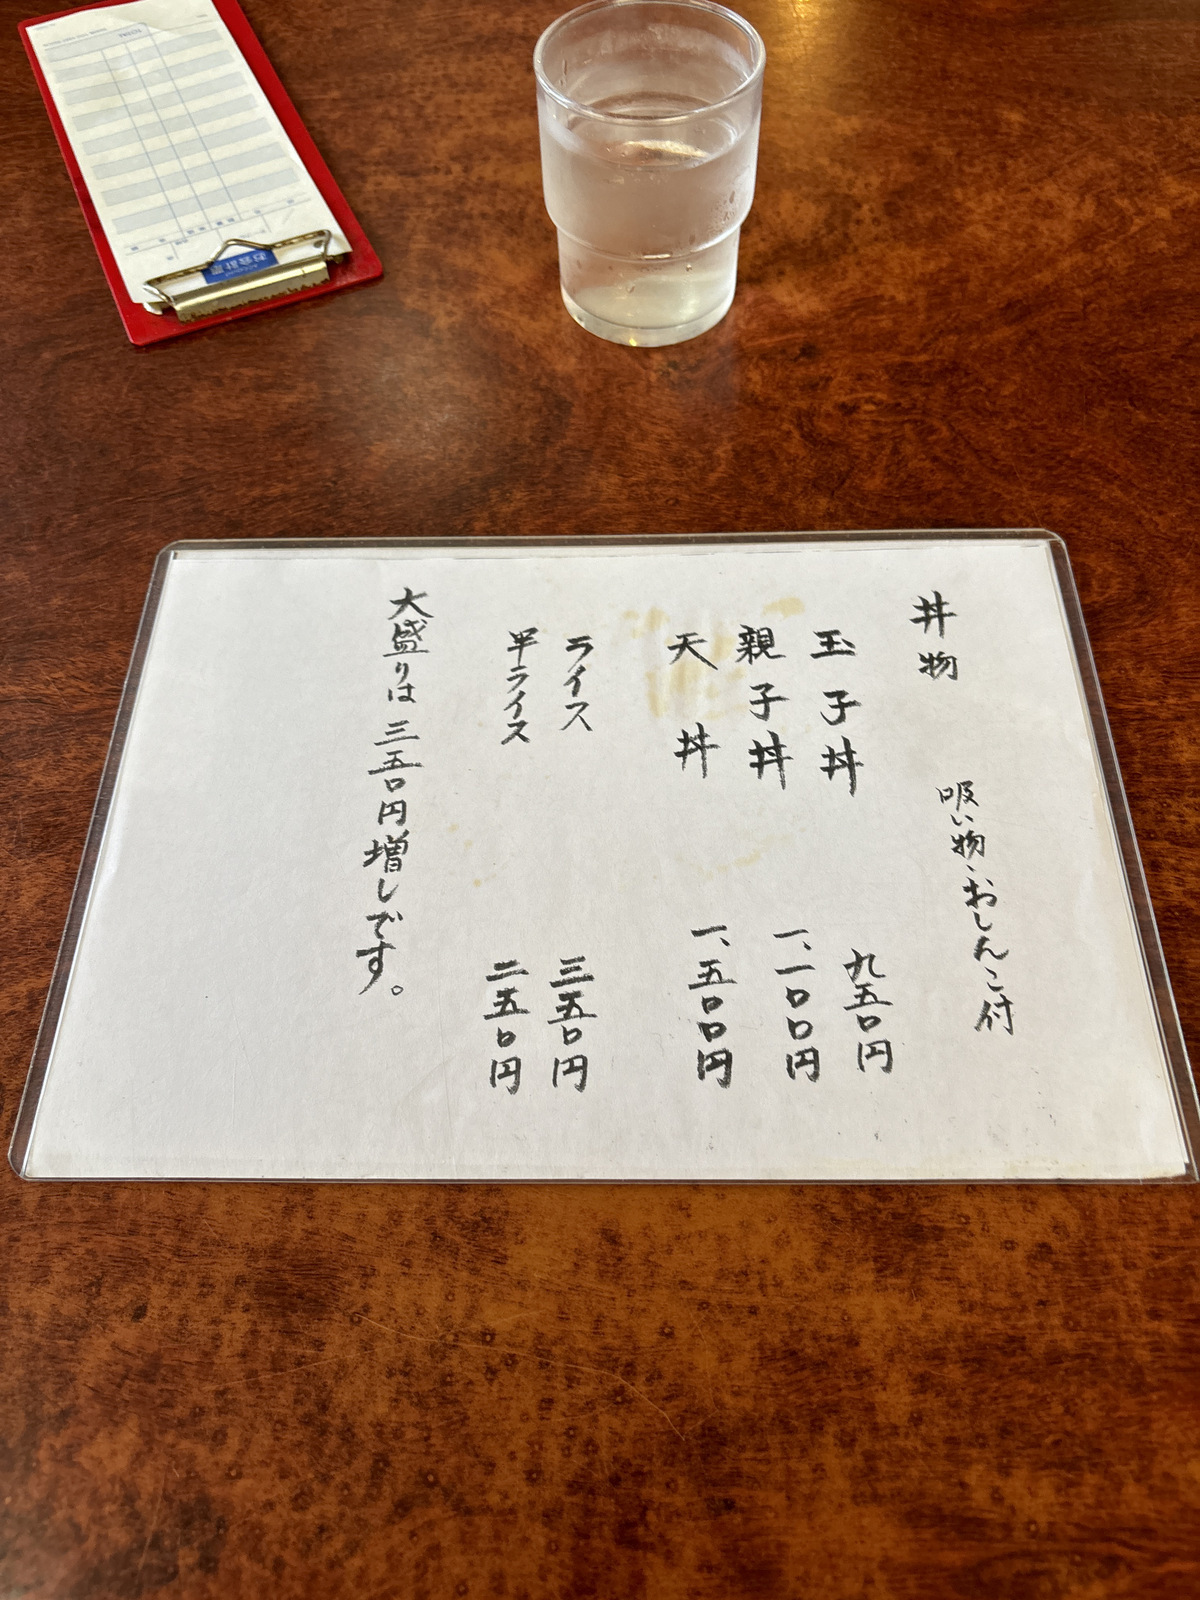 丼物 吸い物、おしんこ付
玉子丼 九五〇円
親子丼 一、一〇〇円
天丼 一、五〇〇円
ライス 三五〇円
半ライス 二五〇円
大盛りは三五〇円増しです。
お会計票
TOTAL